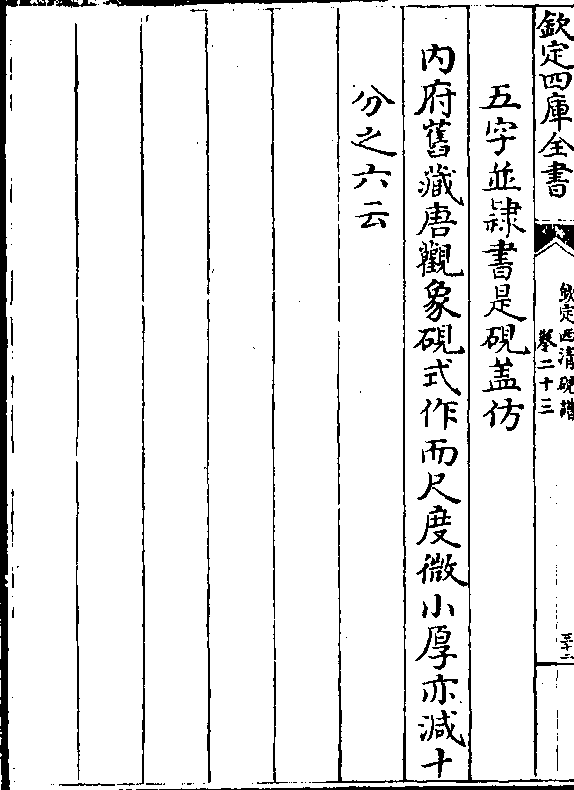 欽定四庫全書
欽定西清硯譜
卷二十三
三十二
五字並隸書是硯盖仿
内府舊藏唐觀象硯式作而尺度微小厚亦減十
分之六云